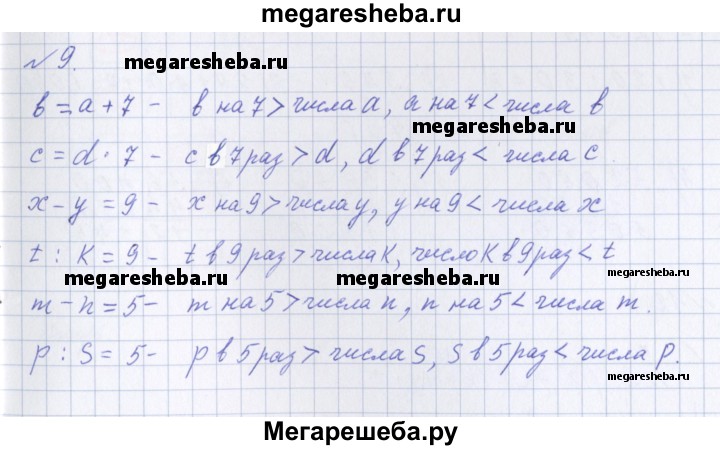 megaresheba.ru
№9. megaresheba.ru
в = а + 7 - в на 7 > числа а, а на 7 < числа в
megaresheba.ru
c = d · 7 - c в 7 раз > d, d в 7 раз < числа c.
x - y = 9 - x на 9 > числа y, y на 9 < числа x
t : K = 9 - t в 9 раз > числа K, число K в 9 раз < t
megaresheba.ru megaresheba.ru megaresheba.ru
m - n = 5 - m на 5 > числа n, n на 5 < числа m.
p : S = 5 - p в 5 раз > числа S, S в 5 раз < числа p.
megaresheba.ru
Мегарешеба.ру